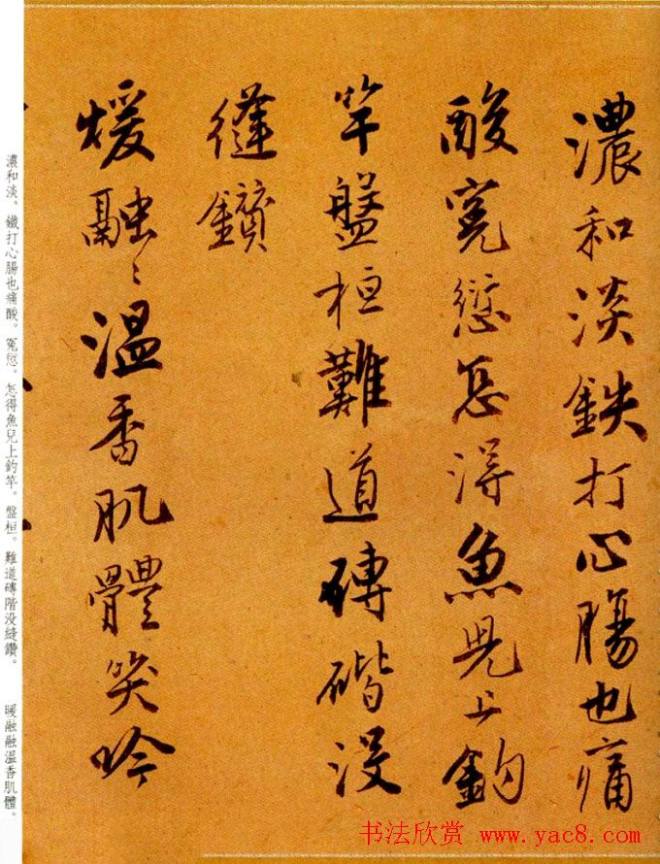 濃和淡鉄打心腸也痛
酸寃愆怎得魚児上釣
竿盤桓難道磚堦没
縫鑚
煖融〻温香肌體笑吟
濃和淡。鐵打心腸也痛酸。冤愆。怎得魚兒上釣竿。盤桓。難道磚階没縫鑽。
暖融融溫香肌體。
书法欣赏 www.yac8.com